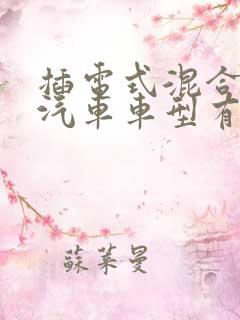 插電式混合
汽車車型有
蘇萊曼